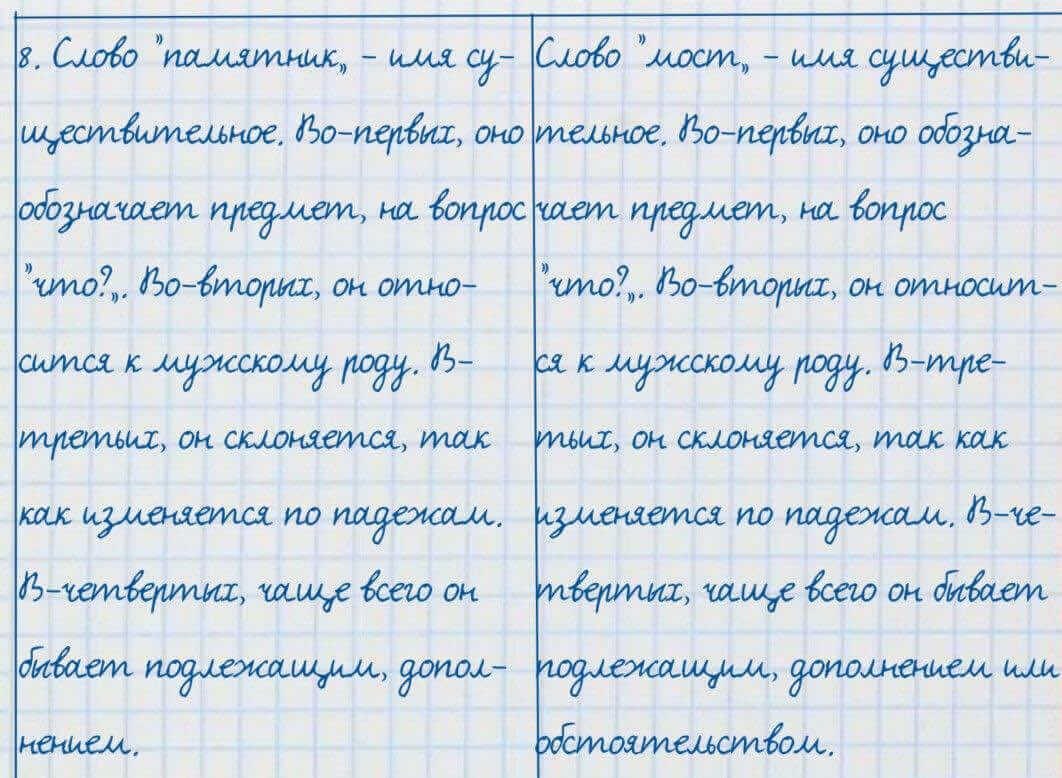 8. Слово "памятник„ – имя су-
ществительное. Во-первых, оно
обозначает предмет, на вопрос
"что?„. Во-вторых, он отно-
сится к мужскому роду. В-
третьих, он склоняется, так
как изменяется по падежам.
В-четвертых, чаще всего он
бывает подлежащим, допол-
нением.
Слово "мост„ – имя существи-
тельное. Во-первых, оно обозна-
чает предмет, на вопрос
"что?„. Во-вторых, он относит-
ся к мужскому роду. В-тре-
тьих, он склоняется, так как
изменяется по падежам. В-че-
твертых, чаще всего он бывает
подлежащим, дополнением или
обстоятельством.